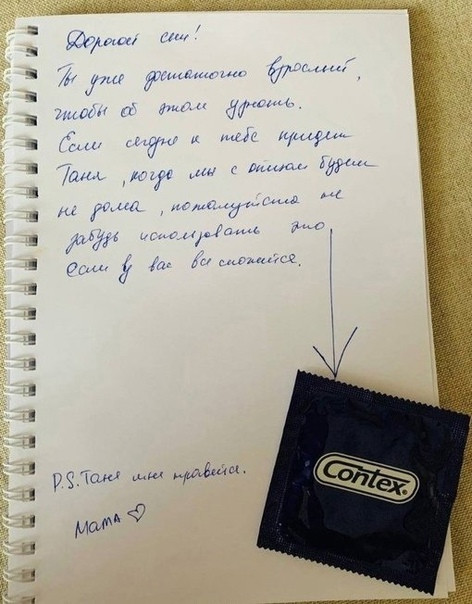 Дорогой сын!
Ты уже достаточно взрослый,
чтобы об этом узнать.
Если сегодня к тебе придет
Таня, когда мы с отцом будем
не дома, пожалуйста не
забудь использовать это
если у вас все сложится.
Contex®
P.S. Таня мне нравится.
Мама ♡